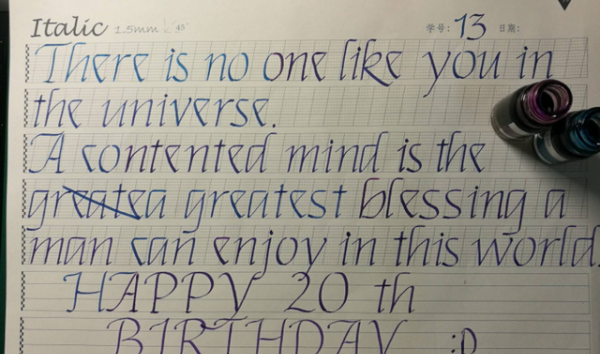 Italic 1.5mm 45° 学号: 13 日期:
There is no one like you in
the universe.
A contented mind is the
greatea greatest blessing a
man can enjoy in this world.
HAPPY 20 th
BIRTHDAY :D